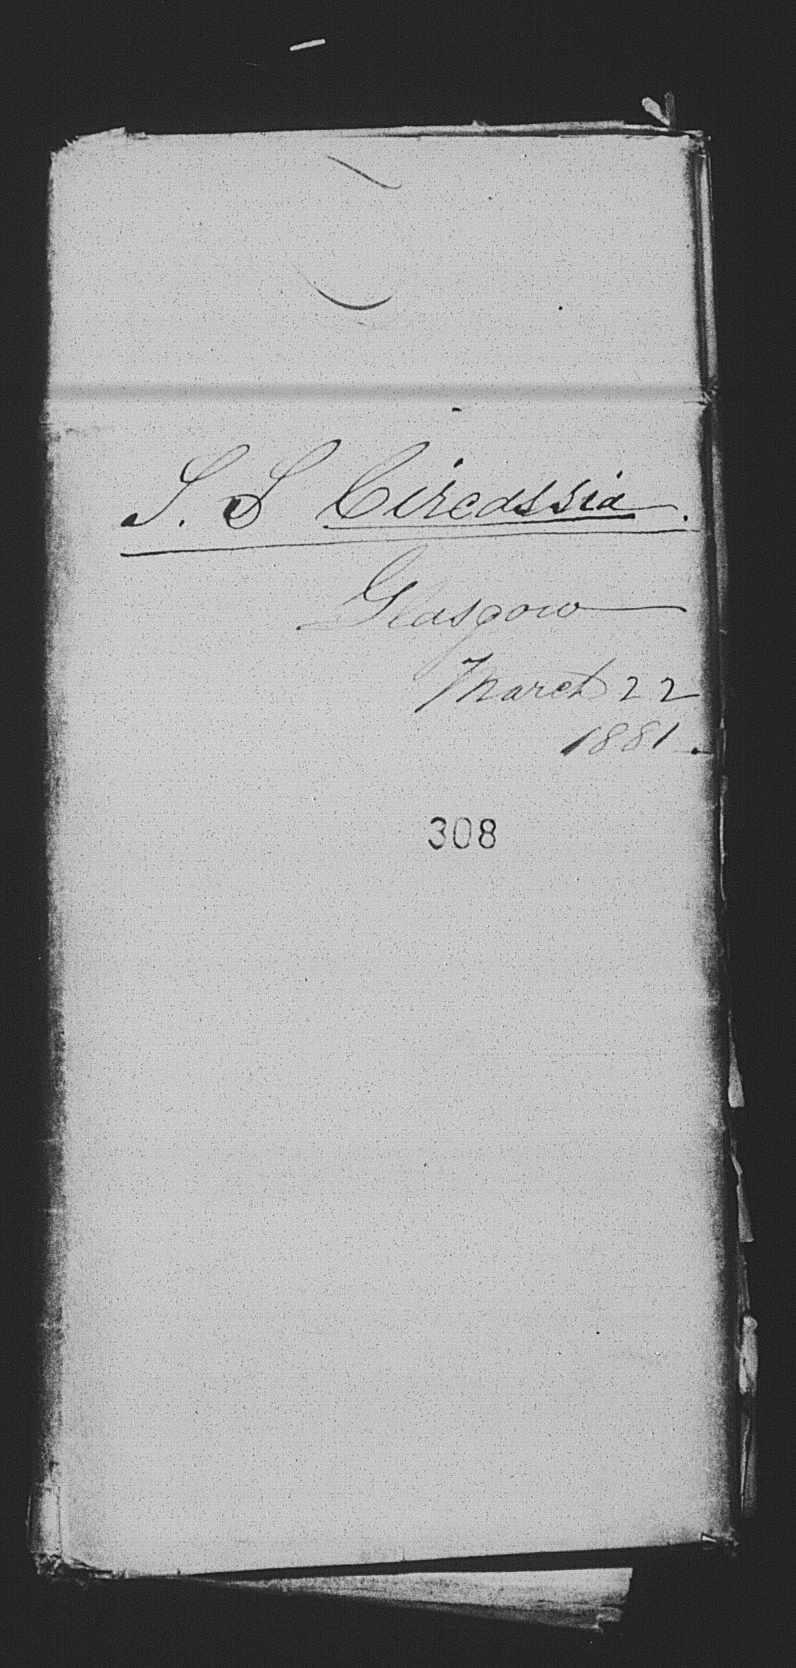 S. S Circassia.
Glasgow
March 22
1881.
308